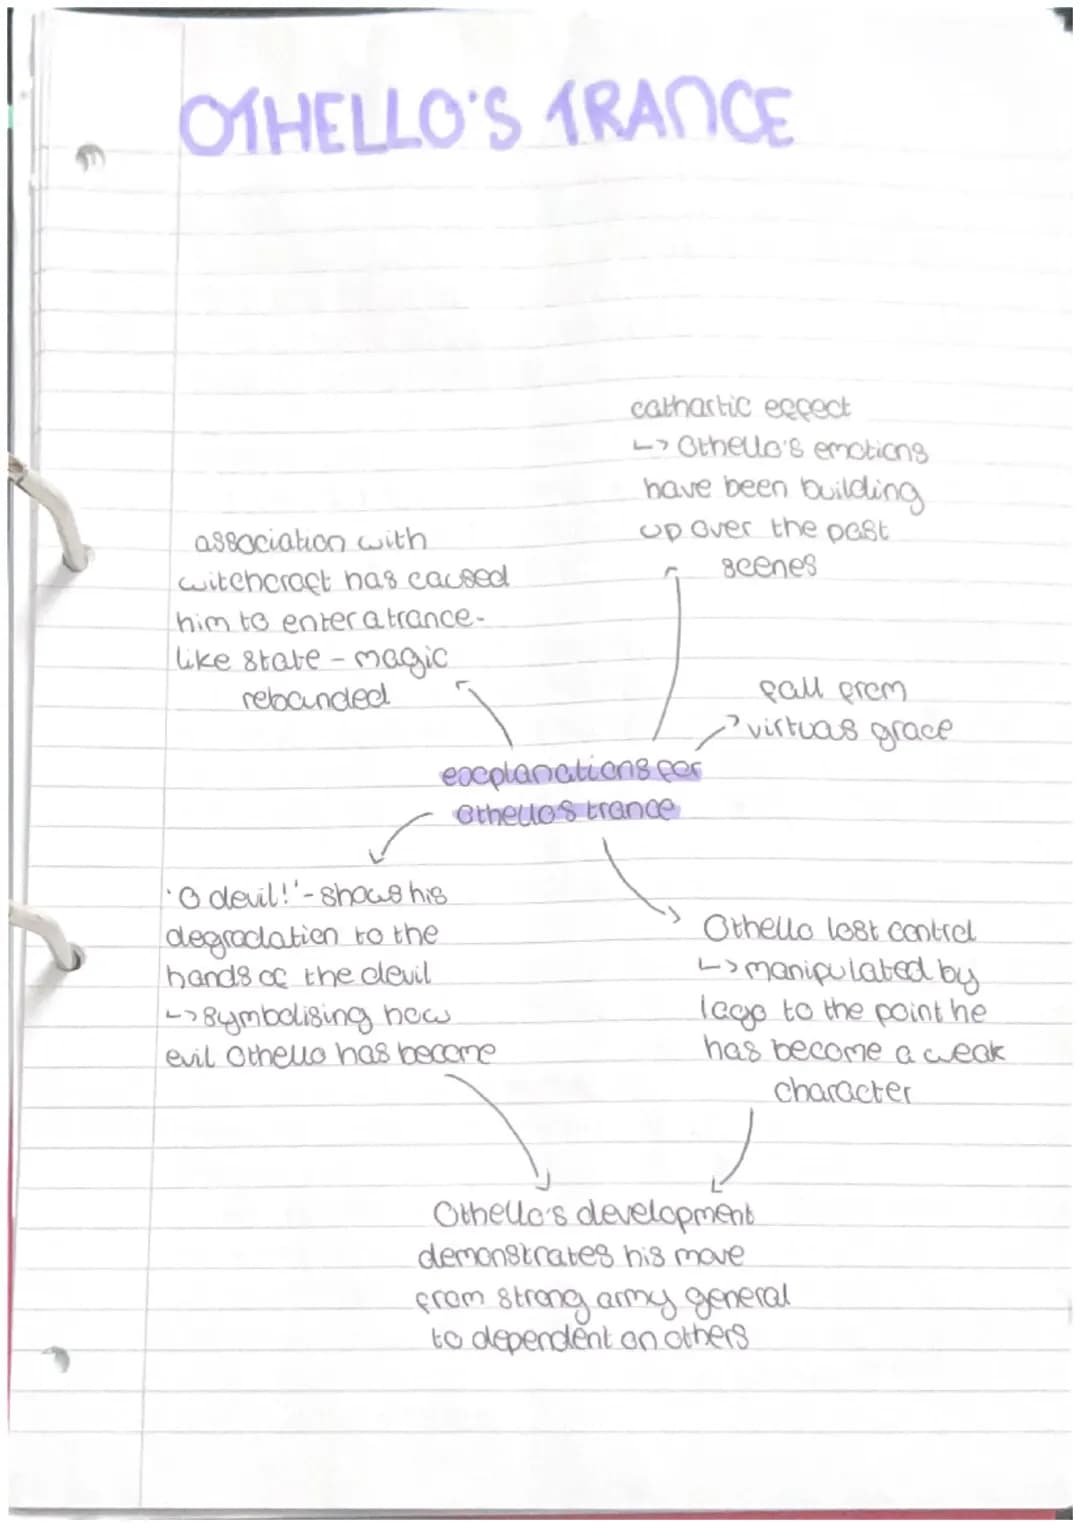 OTHELLO'S TRANCE
cathartic effect
↳ Othello's emotions
have been building
up over the past
scenes
association with
witchcraft has caused
him to enter a trance-
like state - magic
rebounded
fall from
virtuas grace
explanations for
Othello's trance
'O devil!' - shows his
degradation to the
hands of the devil
↳ symbolising how
evil Othello has become
Othello lost control
↳ manipulated by
Iago to the point he
has become a weak
character
Othello's development
demonstrates his move
from strong army general
to dependent on others